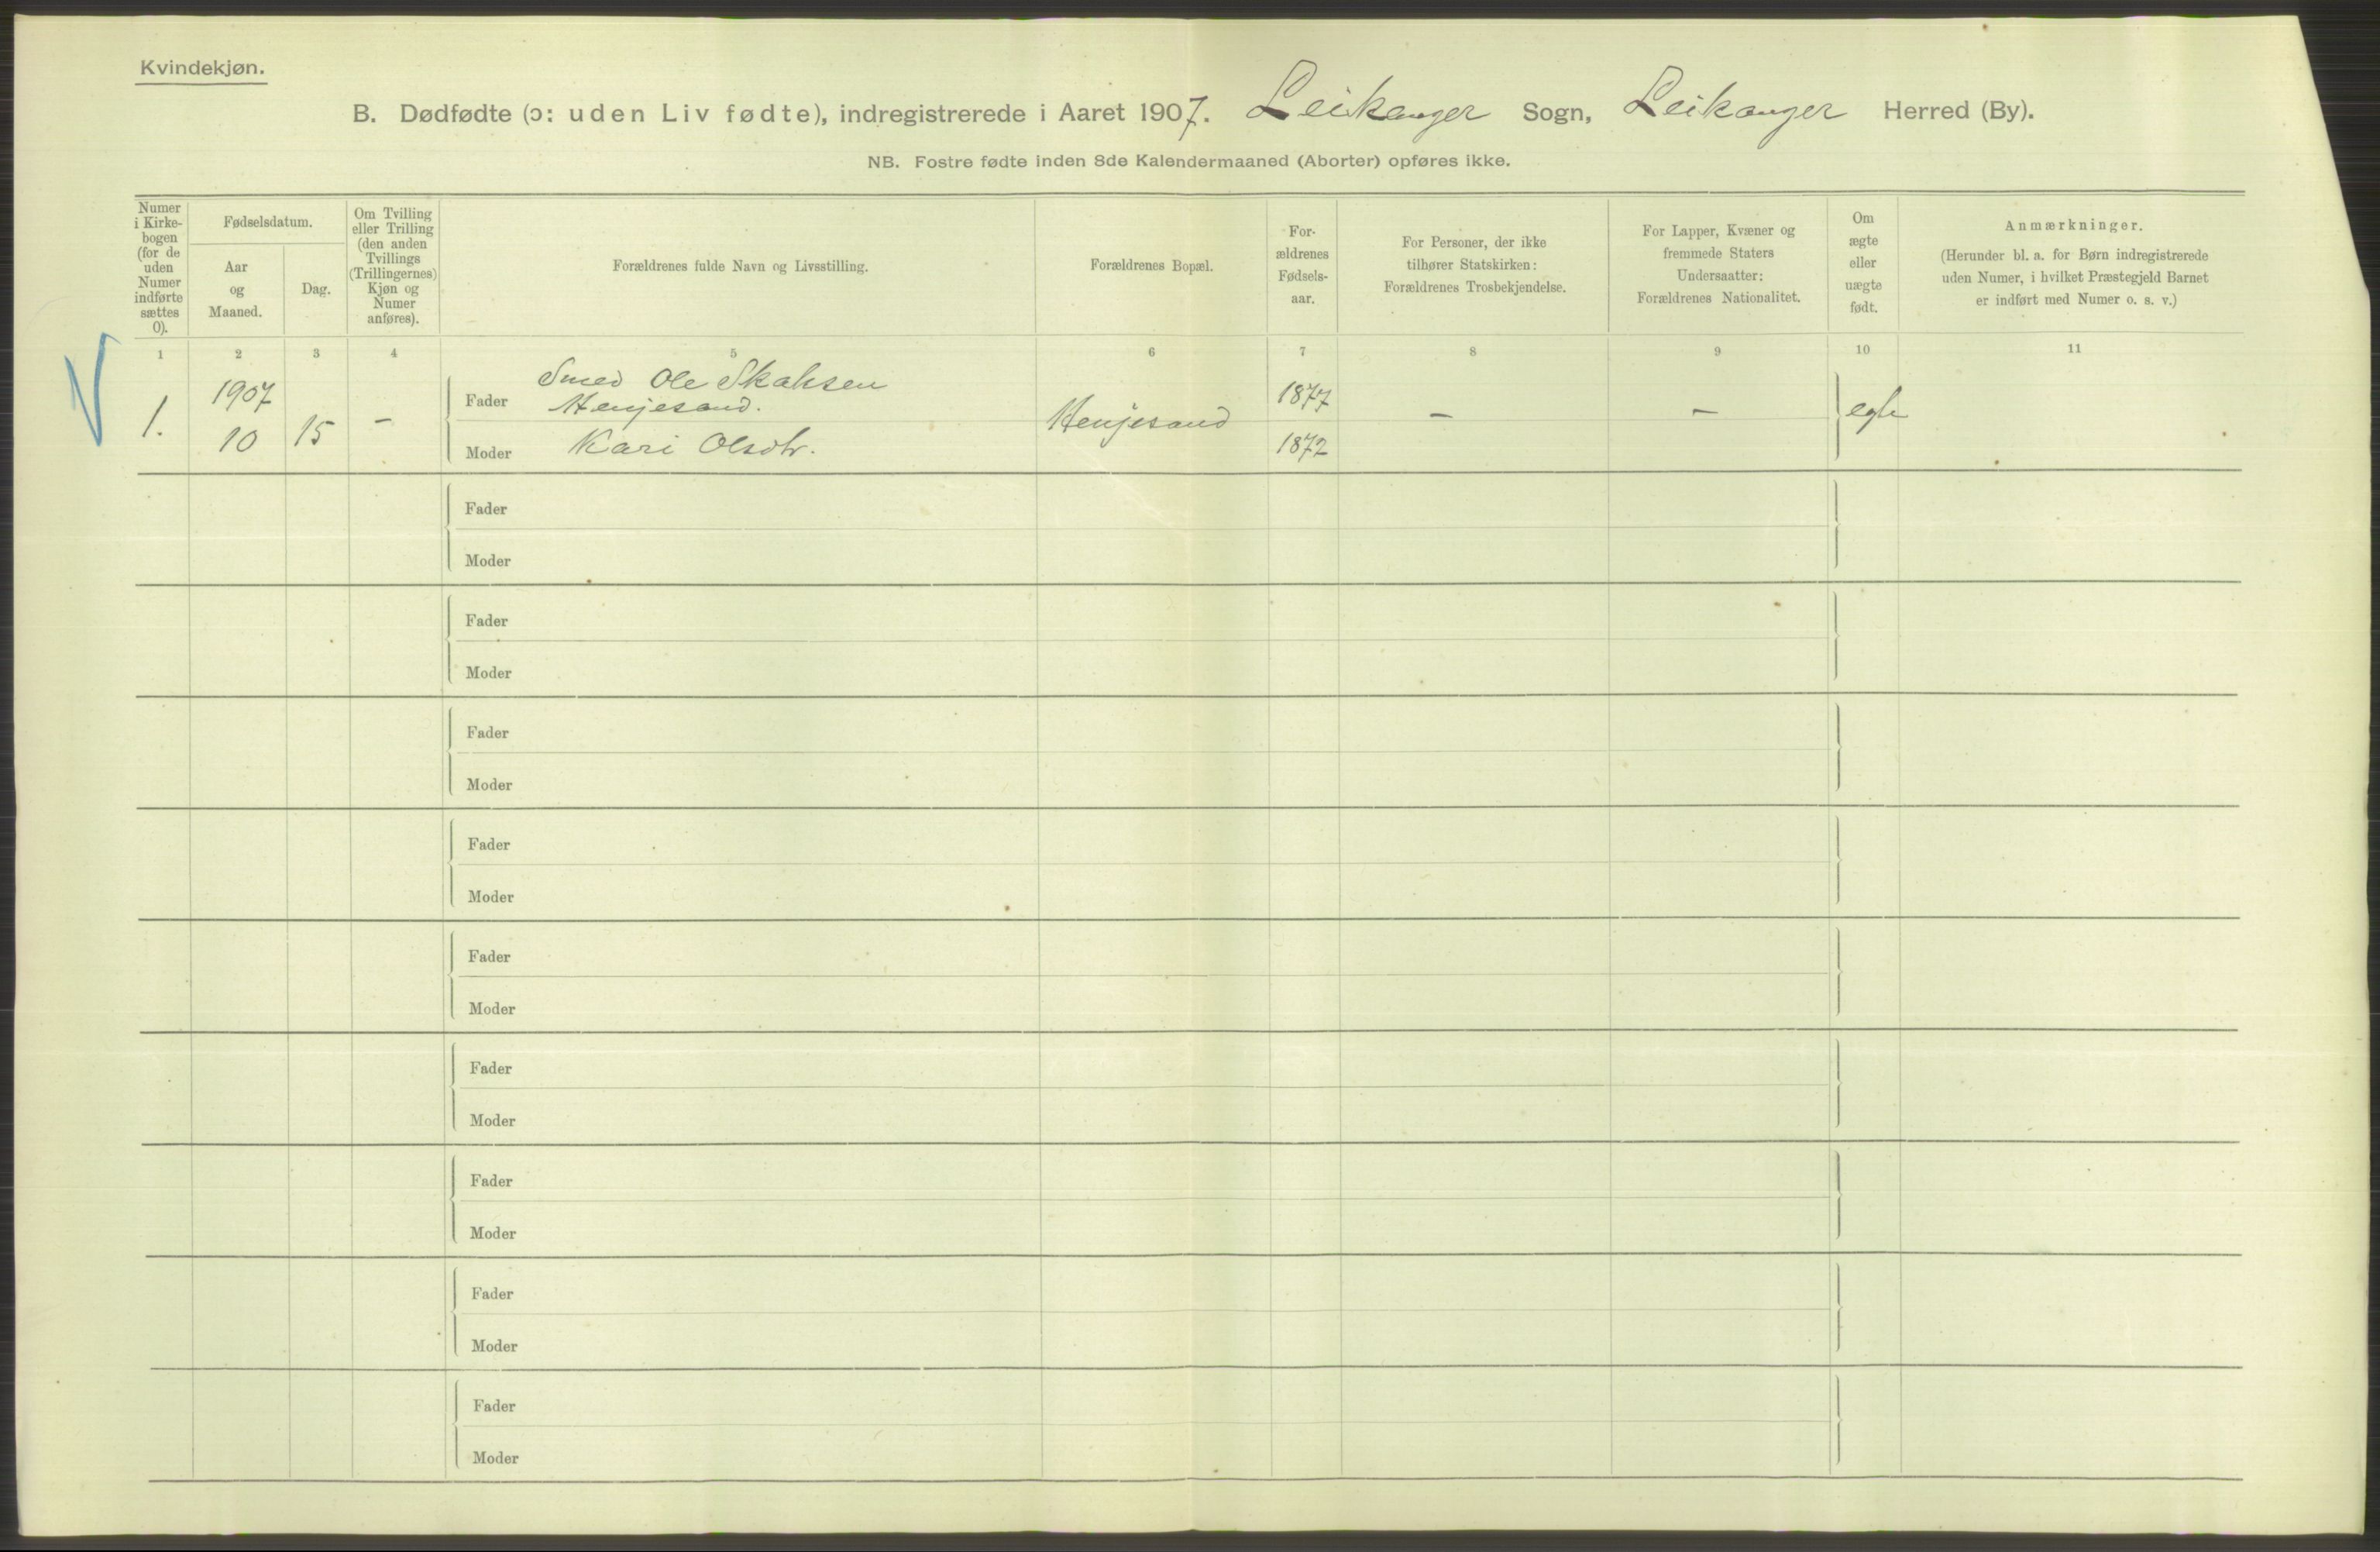 Kvindekjøn.
B. Dødfødte (ɔ: uden Liv fødte), indregistrerede i Aaret 1907. Leikanger Sogn, Leikanger Herred (By).
NB. Fostre fødte inden 8de Kalendermaaned (Aborter) opføres ikke.
Numer
i Kirke-
bogen
(for de
uden
Numer
indførte
sættes
0).
Fødselsdatum.
Aar
og
Maaned.
Dag.
Om Tvilling
eller Trilling
(den anden
Tvillings
(Trillingernes)
Kjøn og
Numer
anføres).
Forældrenes fulde Navn og Livsstilling.
Forældrenes Bopæl.
For-
ældrenes
Fødsels-
aar.
For Personer, der ikke
tilhører Statskirken:
Forældrenes Trosbekjendelse.
For Lapper, Kvæner og
fremmede Staters
Undersaatter:
Forældrenes Nationalitet.
Om
ægte
eller
uægte
født.
Anmærkninger.
(Herunder bl. a. for Børn indregistrerede
uden Numer, i hvilket Præstegjeld Barnet
er indført med Numer o. s. v.)
1 2 3 4 5 6 7 8 9 10 11
1.
1907
10
15
–
Fader
Smed Ole
Henjesand.
Moder Kari Olsdtr.
Henjesand
1877
1872
–
–
egte
Fader
Moder
Fader
Moder
Fader
Moder
Fader
Moder
Fader
Moder
Fader
Moder
Fader
Moder
Fader
Moder
Fader
Moder